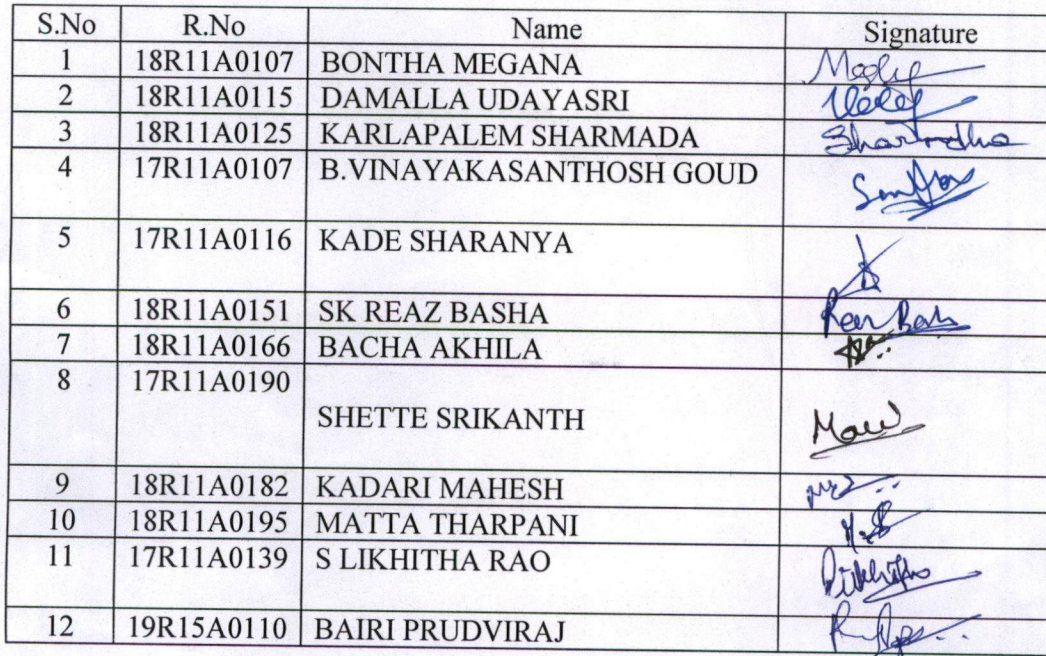 S.No R.No Name Signature
1 18R11A0107 BONTHA MEGANA
2 18R11A0115 DAMALLA UDAYASRI
3 18R11A0125 KARLAPALEM SHARMADA Sharmadha
4 17R11A0107 B.VINAYAKASANTHOSH GOUD
5 17R11A0116 KADE SHARANYA
6 18R11A0151 SK REAZ BASHA
7 18R11A0166 BACHA AKHILA
8 17R11A0190
SHETTE SRIKANTH
9 18R11A0182 KADARI MAHESH
10 18R11A0195 MATTA THARPANI
11 17R11A0139 S LIKHITHA RAO
12 19R15A0110 BAIRI PRUDVIRAJ